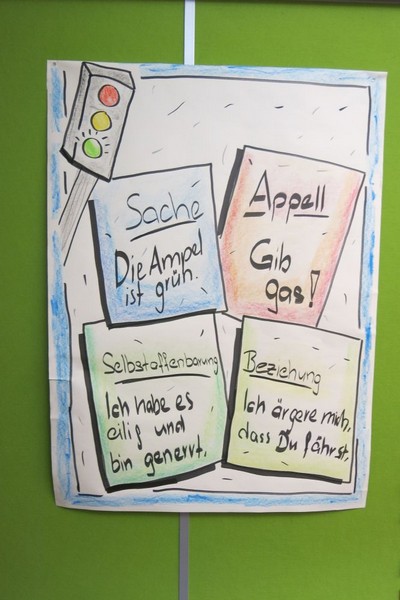 Sache
Die Ampel
ist grün.
Appell
Gib
gas!
Selbstoffenbarung
Ich habe es
eilig und
bin genervt.
Beziehung
Ich ärgere mich,
dass Du fährst.